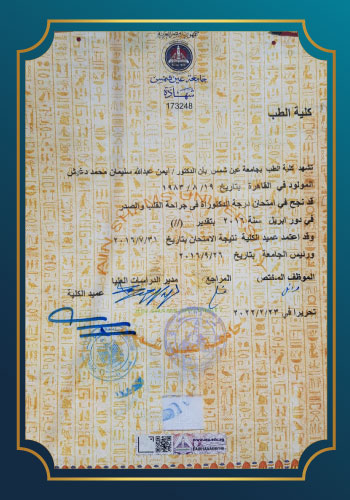 جامعة عين شمس
شهادة
173248
كلية الطب
تشهد كلية الطب بجامعة عين شمس بأن الدكتور / أيمن عبدالله سليمان محمد
المولود في القاهرة بتاريخ ١٩ / ٨ / ١٩٨٣
قد نجح في امتحان درجة الدكتوراة في جراحة القلب والصدر
في دور ابريل سنة ٢٠١٦ بتقدير (//)
وقد اعتمد عميد الكلية نتيجة الامتحان بتاريخ ٢٠١٦/٧/٣١
ورئيس الجامعة بتاريخ ٢٠١٦/٩/٢٦
الموظف المختص المراجع مدير الدراسات العليا عميد الكلية
تحريرا في ٢٠٢٢/٢/٢٣